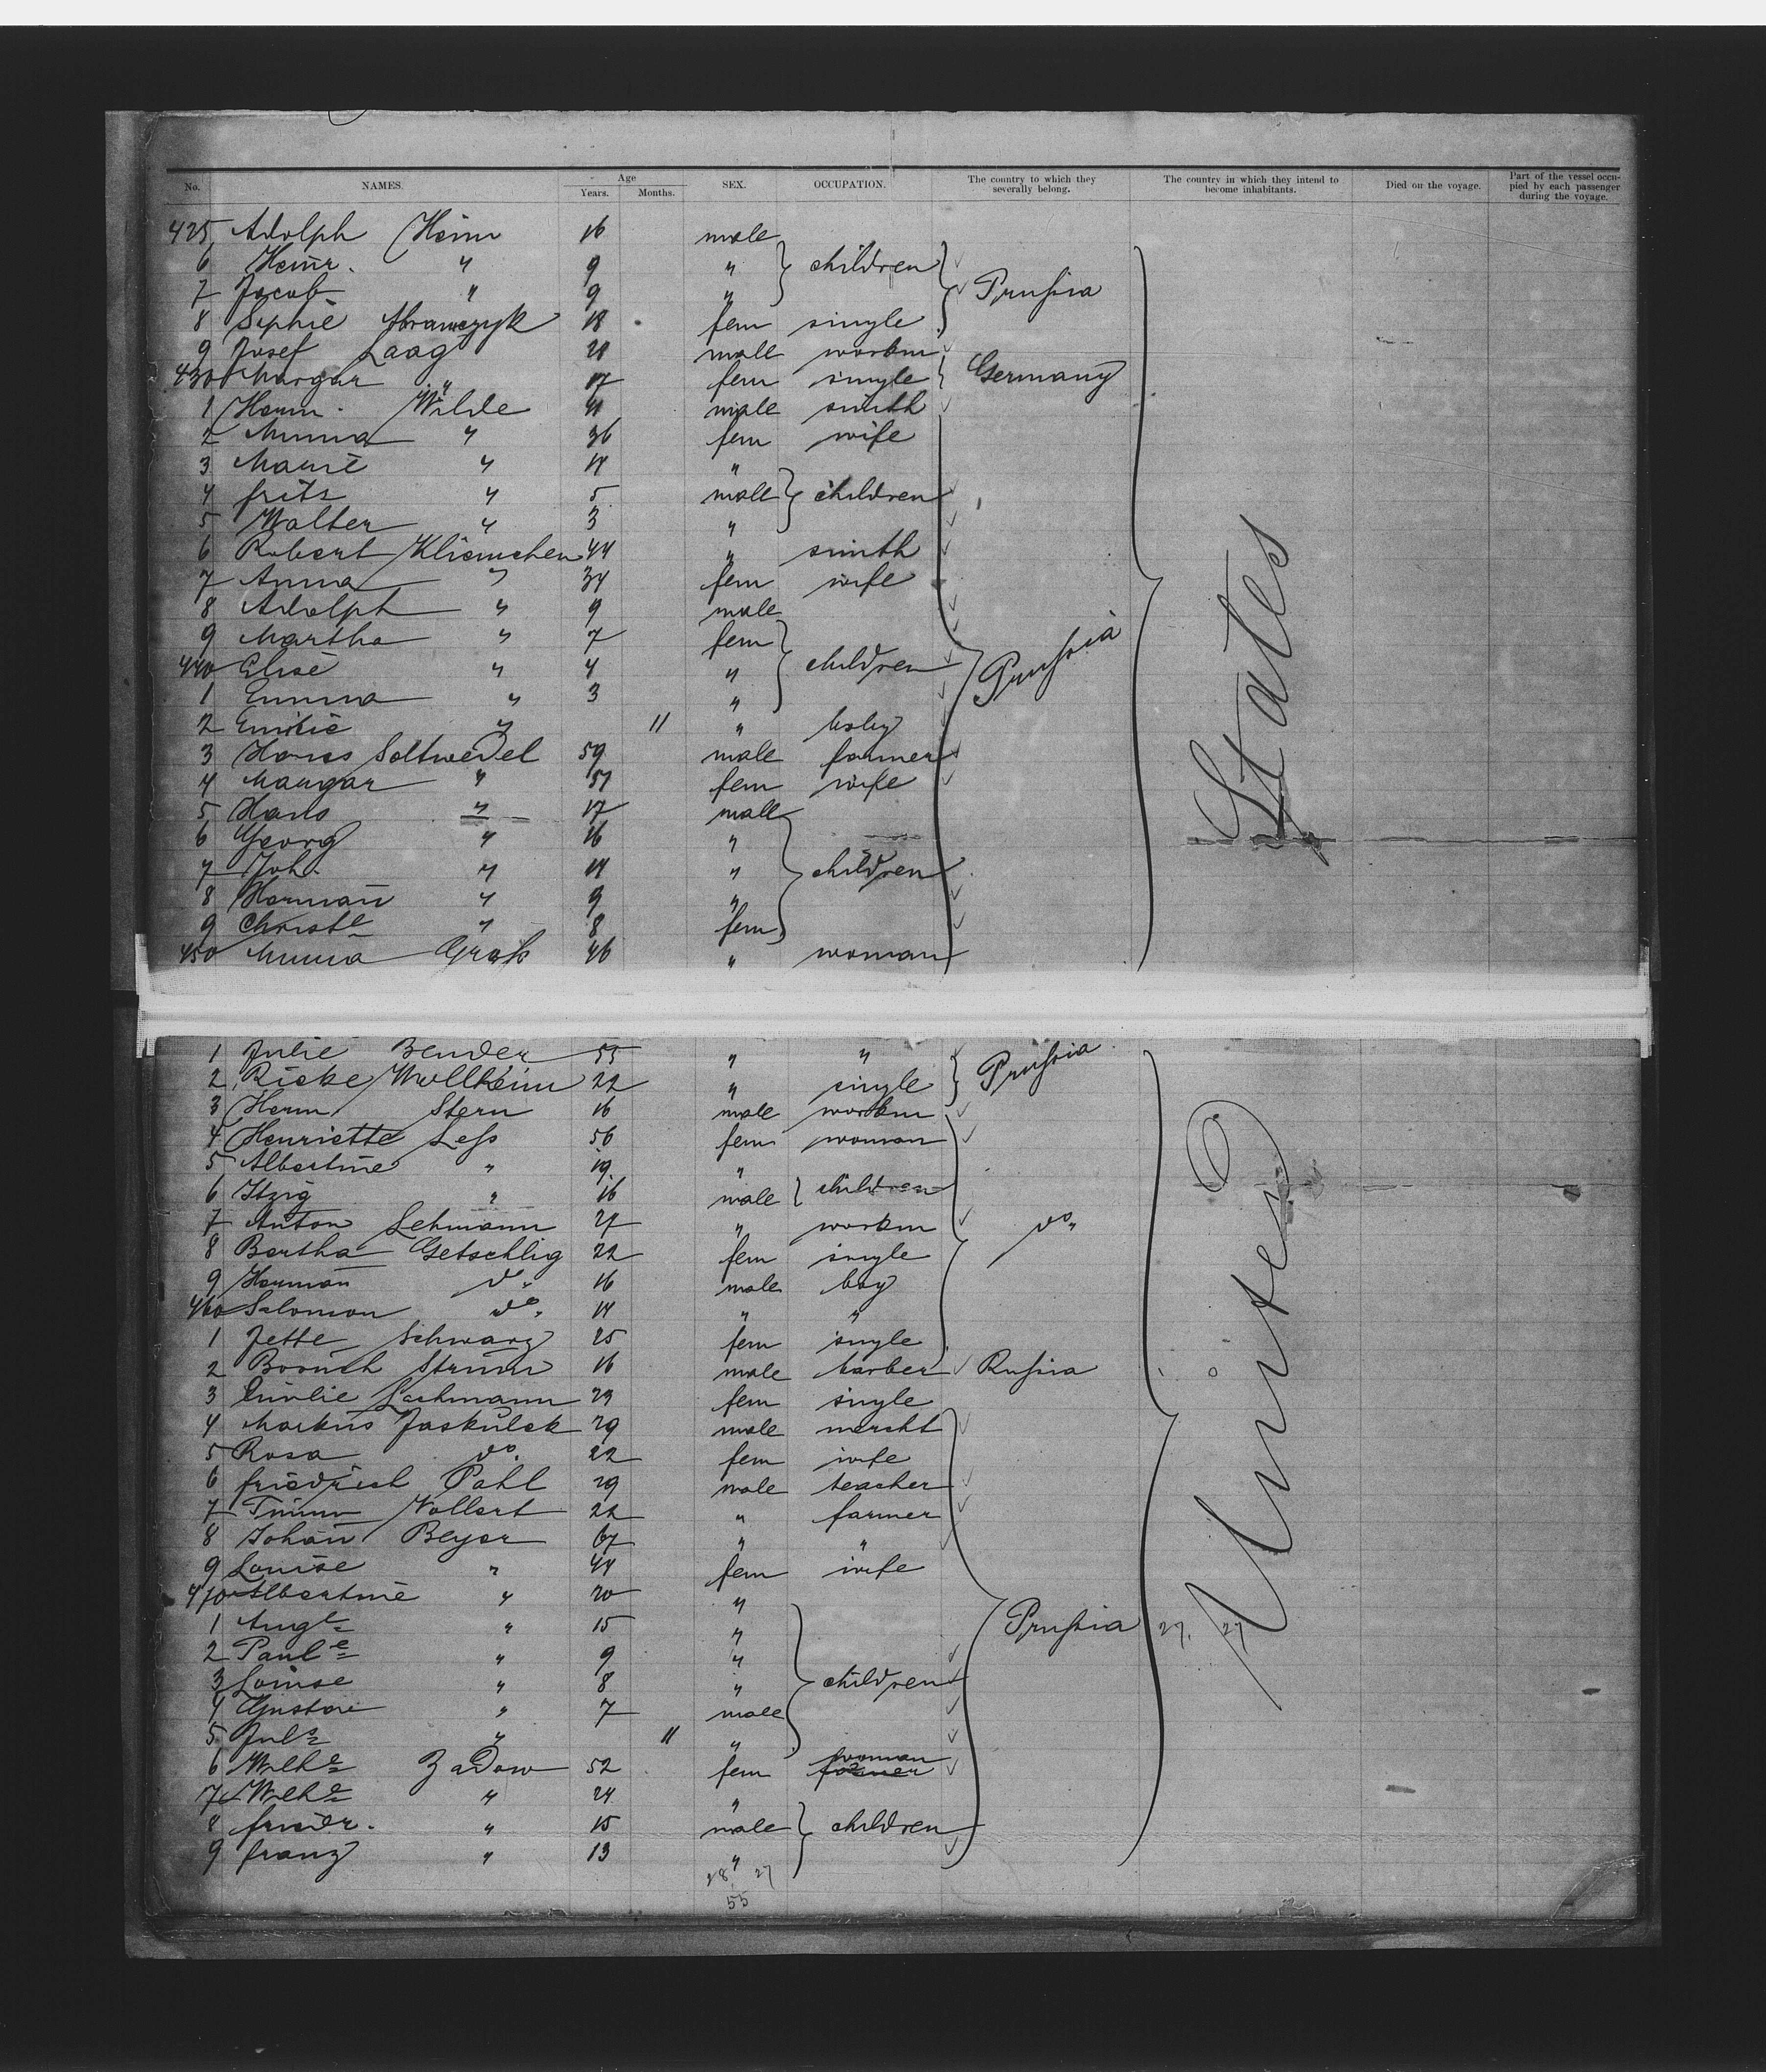 No. NAMES. Age Years. Months. SEX. OCCUPATION. The country to which they severally belong. The country in which they intend to become inhabitants. Died on the voyage. Part of the vessel occupied by each passenger during the voyage.
425 Adolph Heim 16 male
6 Heinr. " 9 " children
7 Jacob " 9 " Prussia
8 Sophie Abramczyk 18 fem single
9 Josef Laag 28 male workm
430 Margar " 17 fem single Germany
1 Herm. Wilde 41 male smith
2 Minna " 36 fem wife
3 Marie " 11 "
4 fritz " 5 male children
5 Walter " 3 "
6 Robert Kliemchen 44 " smith
7 Anna " 34 fem wife
8 Adolph " 9 male
9 Martha " 7 fem
440 Elise " 4 " children Prussia
1 Emma " 3 "
2 Emilie " 11 " baby
3 Hans Soltwedel 59 male farmer
4 Margar " 51 fem wife
5 Hans " 17 male
6 Georg " 16 "
7 Joh. " 11 " children
8 Herman " 9 "
9 Christe " 8 fem
450 Minna Grass 46 " woman
States
1 Julie Bender 55 " " Prussia
2 Ricke Wollheim 22 " single
3 Herm Stern 16 male workm
4 Henriette Less 56 fem woman
5 Albertine " 19 "
6 Itzig " 16 male children
7 Anton Lehmann 27 " workm do
8 Bertha Getschlig 22 fem single
9 Herman do. 16 male boy
460 Salomon do. 14 " "
1 Jette Schwarz 25 fem single
2 Boruch Strum 16 male barber Russia
3 Lachmann 23 fem single
4 Markus Jaskulek 29 male mercht
5 Rosa do. 22 fem wife
6 friedrich Pahl 29 male teacher
7 Timm Vollert 22 " farmer
8 Johan Beyer 67 " "
9 Louise " 44 fem wife
470 Albertine " 20 "
1 Auge " 15 " Prussia 27. 27
2 Paule " 9 "
3 Louise " 8 " children
4 Gustav " 7 male
5 Juls " 11 "
6 Wilhe Zadow 52 fem woman farmer
7 Wilhe " 24 "
8 friedr. " 15 male children
9 franz " 13 "
28 27
55
United